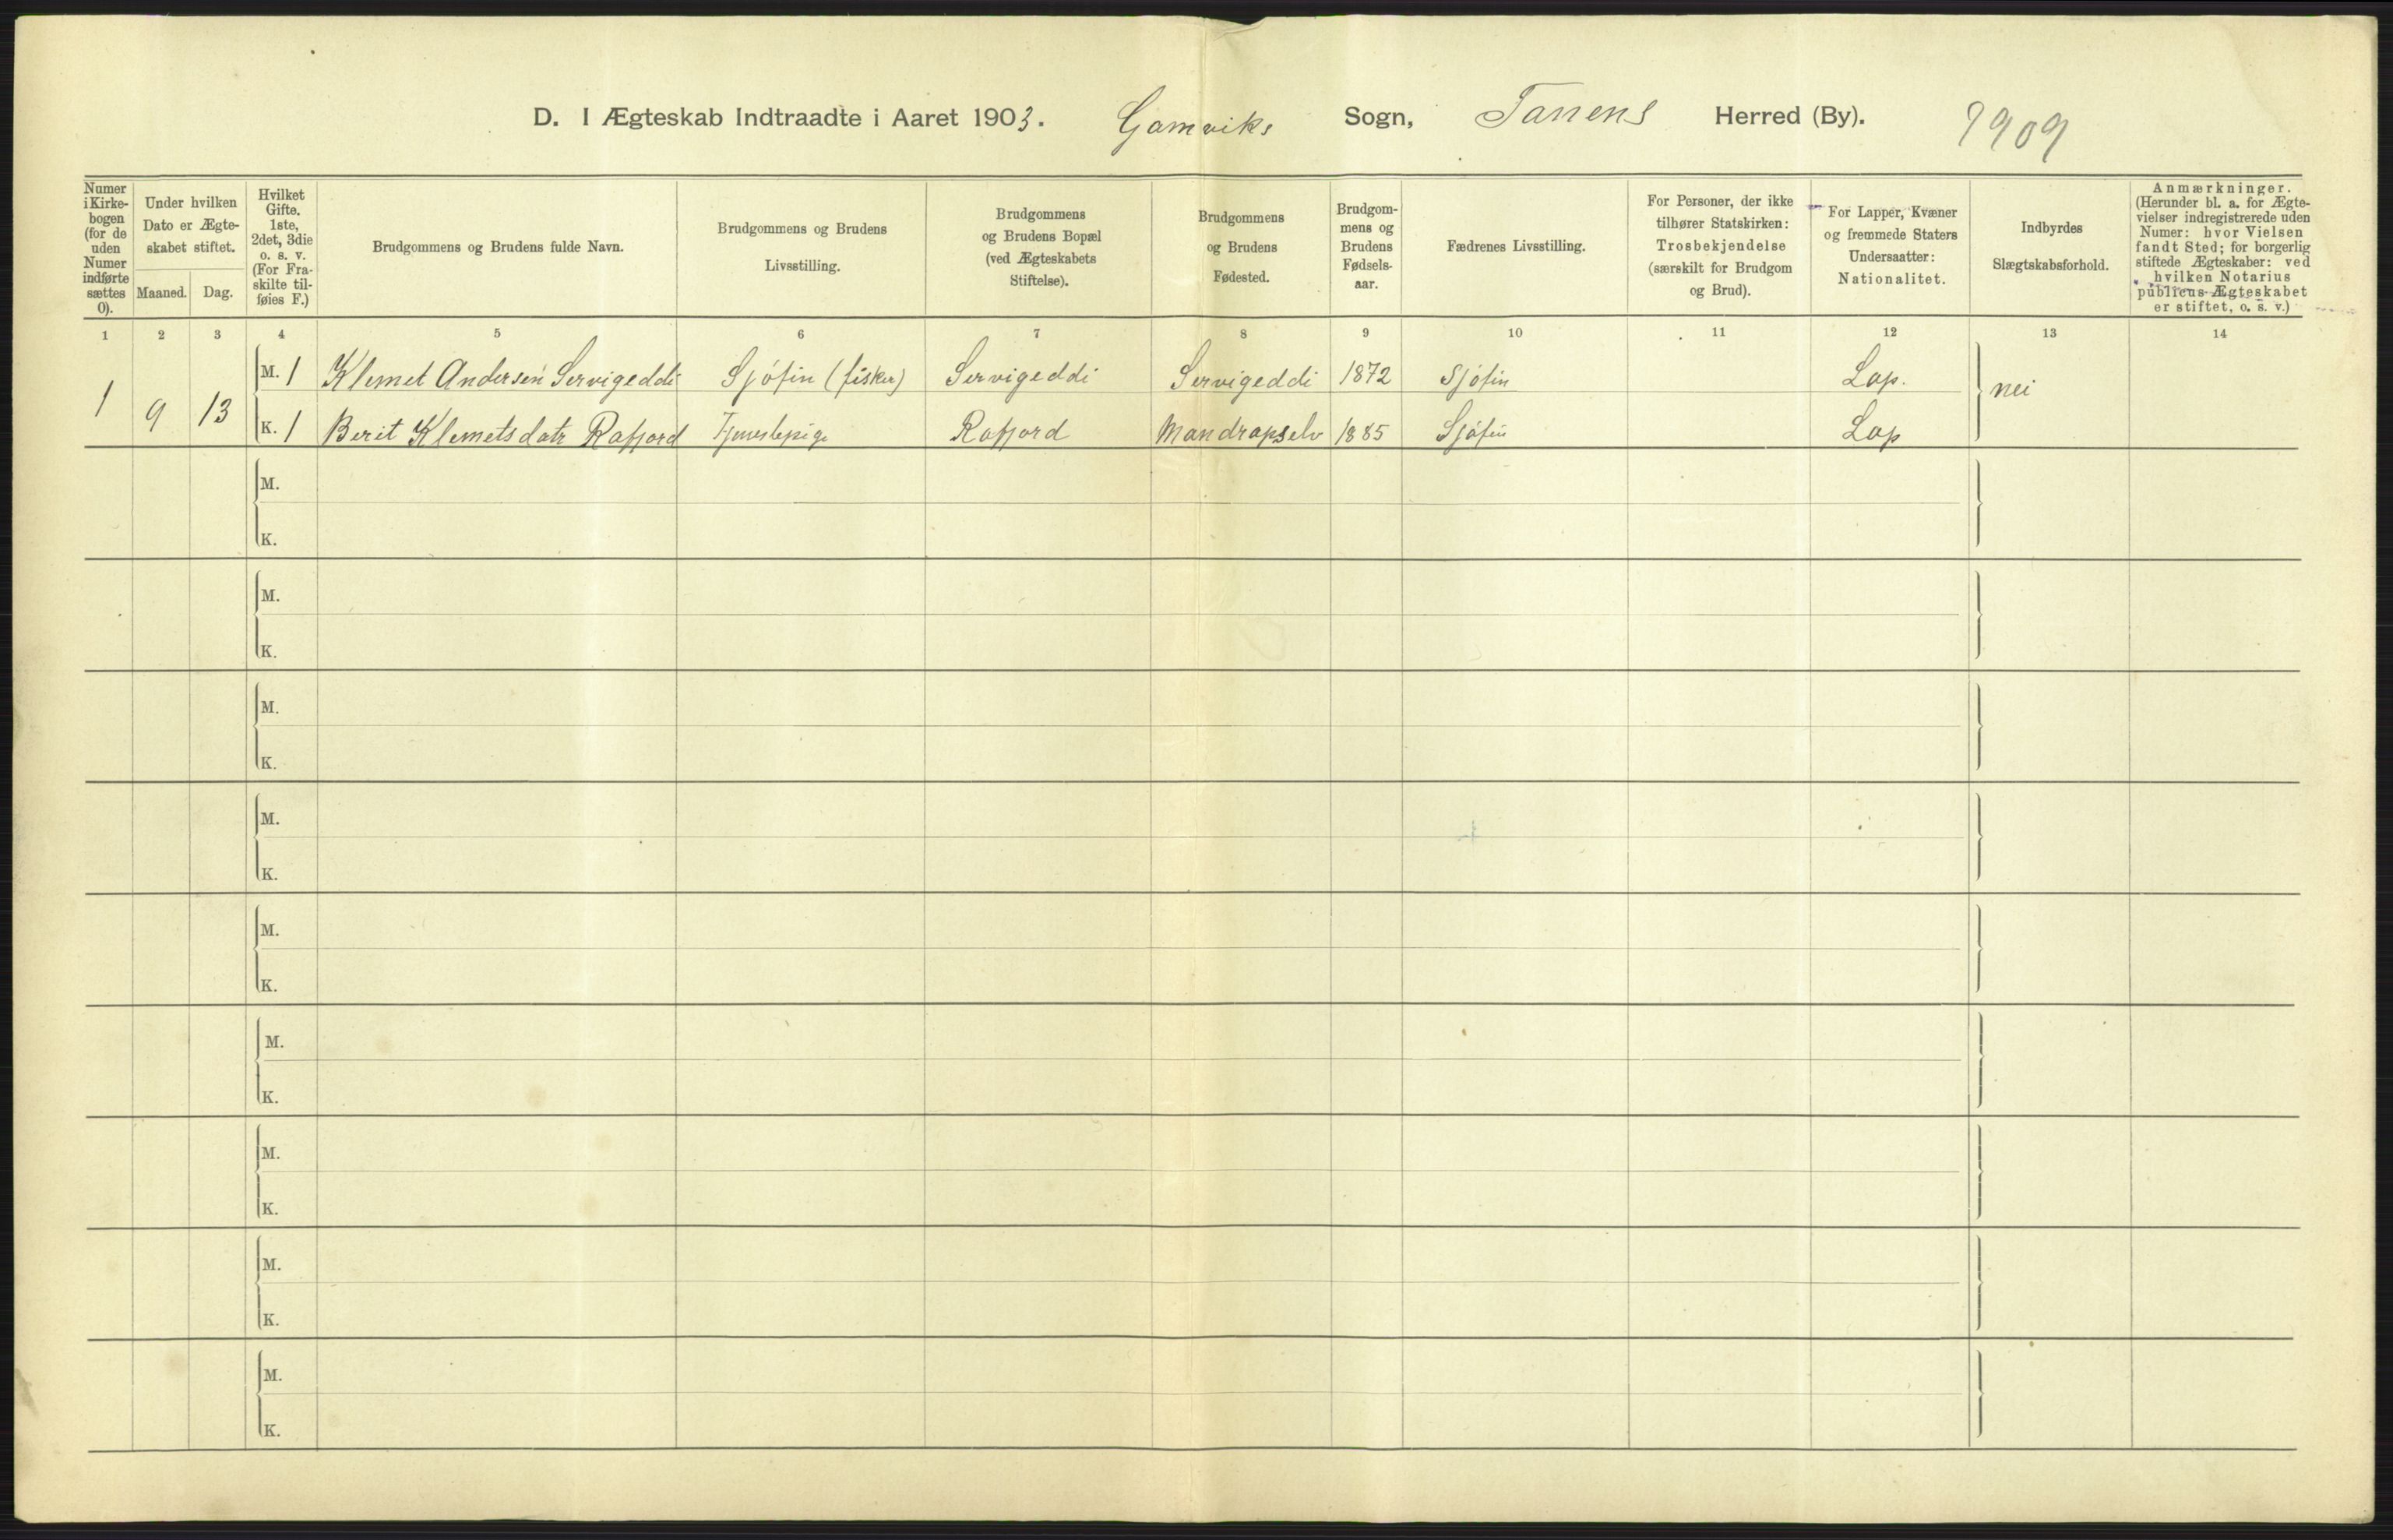 D. I Ægteskab Indtraadte i Aaret 1903. Gamviks Sogn, Tanens Herred (By). 7909
Numer i Kirkebogen (for de uden Numer indførte sættes 0).
Under hvilken Dato er Ægteskabet stiftet.
Maaned. Dag.
Hvilket Gifte. 1ste, 2det, 3die o. s. v. (For Fraskilte tilføies F.)
Brudgommens og Brudens fulde Navn.
Brudgommens og Brudens Livsstilling.
Brudgommens og Brudens Bopæl (ved Ægteskabets Stiftelse).
Brudgommens og Brudens Fødested.
Brudgommens og Brudens Fødselsaar.
Fædrenes Livsstilling.
For Personer, der ikke tilhører Statskirken: Trosbekjendelse (særskilt for Brudgom og Brud).
For Lapper, Kvæner og fremmede Staters Undersaatter: Nationalitet.
Indbyrdes Slægtskabsforhold.
Anmærkninger. (Herunder bl. a. for Ægtevielser indregistrerede uden Numer: hvor Vielsen fandt Sted; for borgerlig stiftede Ægteskaber: ved hvilken Notarius publicus Ægteskabet er stiftet, o. s. v.)
1 2 3 4 5 6 7 8 9 10 11 12 13 14
1 9 13 M. 1 Klemet Andersen Servigeddi Sjøfin (fisker) Servigeddi Servigeddi 1872 Sjøfin Lap. nei
K. 1 Berit Klemetsdatr Rafjord Tjenestepige Rafjord Mandrapselv 1885 Sjøfin Lap
M.
K.
M.
K.
M.
K.
M.
K.
M.
K.
M.
K.
M.
K.
M.
K.
M.
K.